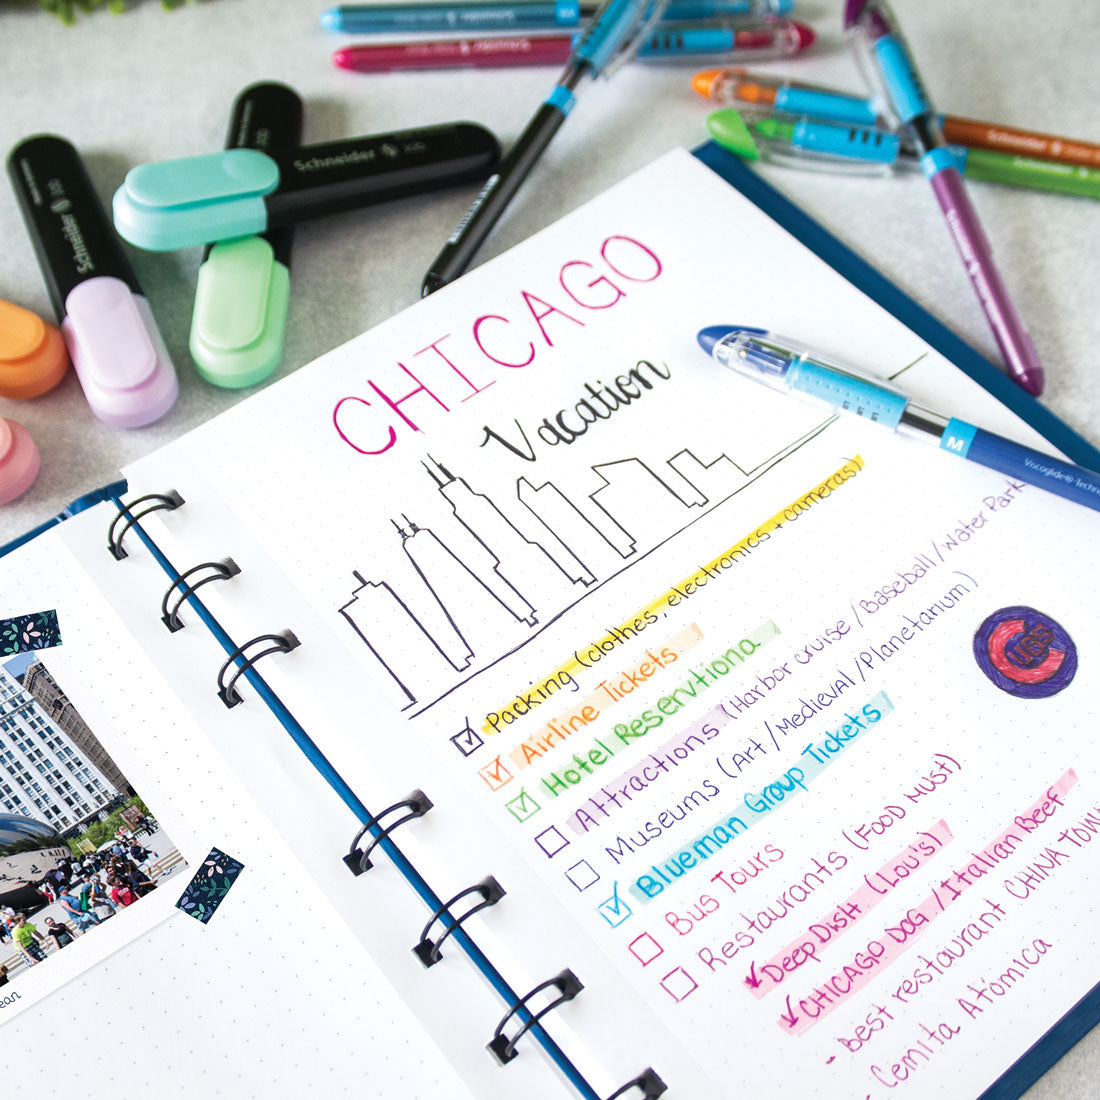 Schneider
Schneider
Schneider
Schneider
CHICAGO
Vacation
M
Viscoglide® - Techn
Packing (clothes, electronics + cameras)
Airline Tickets
Hotel Reservtiona
Attractions (Harbor cruise / Baseball / Water Park
Museums (Art / Medieval / Planetarium)
CUBS
Blueman Group Tickets
Bus Tours
Restaurants (FOOD MUST)
Deep Dish (Lou's)
CHICAGO DOG / Italian Beef
- Best restaurant CHINA TOWN
- Cemita Atómica
ean